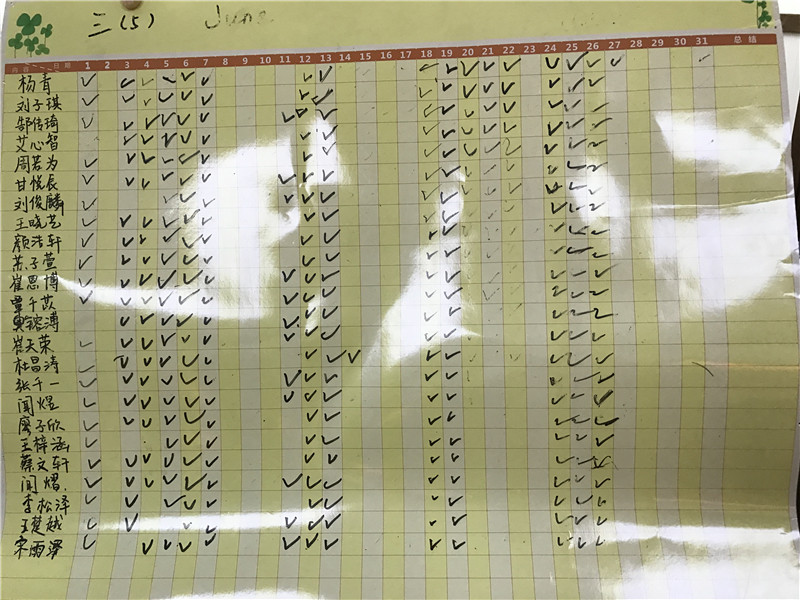 三(5) June
内容 日期 1 2 3 4 5 6 7 8 9 10 11 12 13 14 15 16 17 18 19 20 21 22 23 24 25 26 27 28 29 30 31 总结
杨青
刘子琪
郜传琦
艾心智
周若为
甘悦辰
刘俊麟
王晓艺
颜浩轩
苏子萱
崔恩博
覃千苡
溥
崔天荣
杜昌涛
张千一
闻煜
廖子欣
王梓涵
蔡文轩
闻熠
李松泽
王楚越
宋雨泽